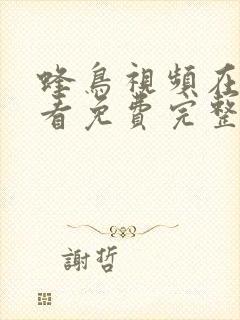 蜂鳥視頻在
看免費完整
謝哲